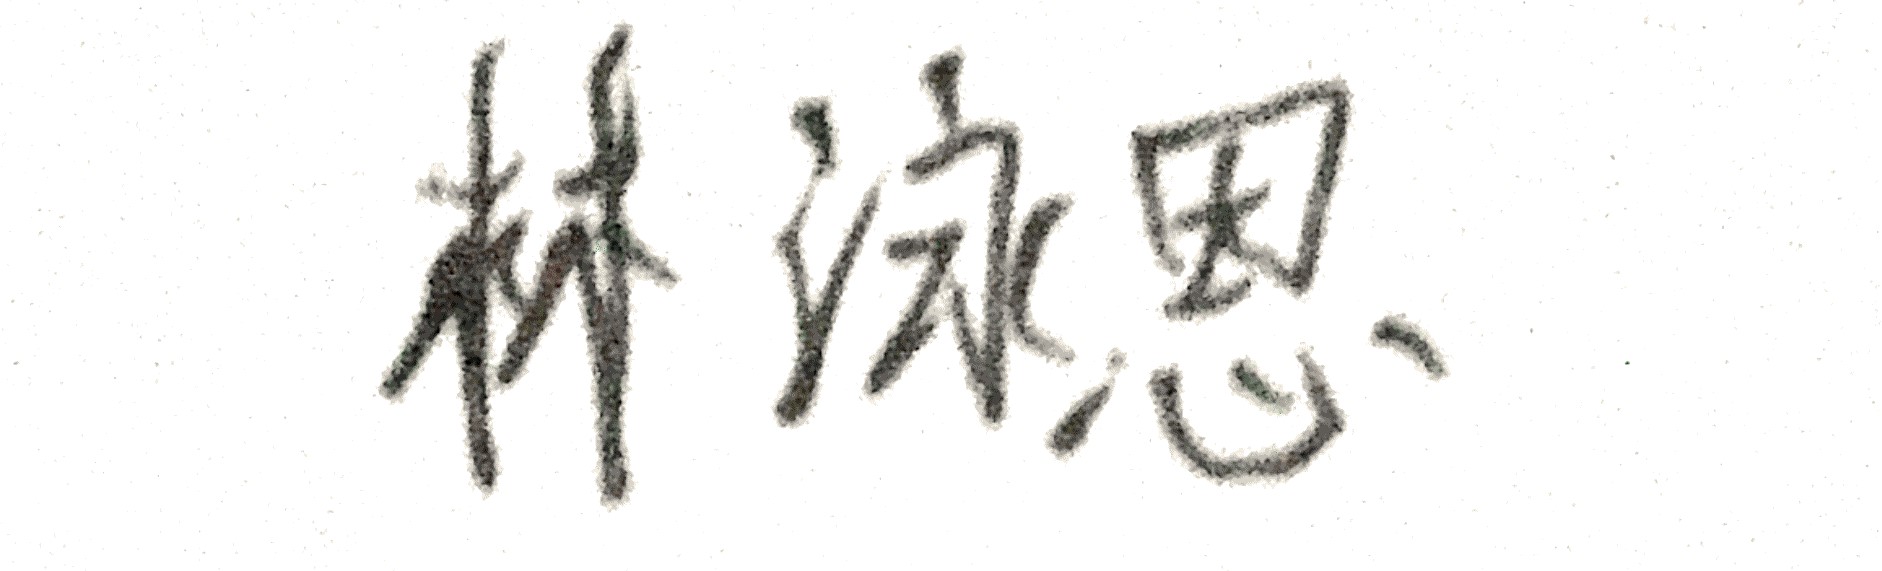 林泳恩